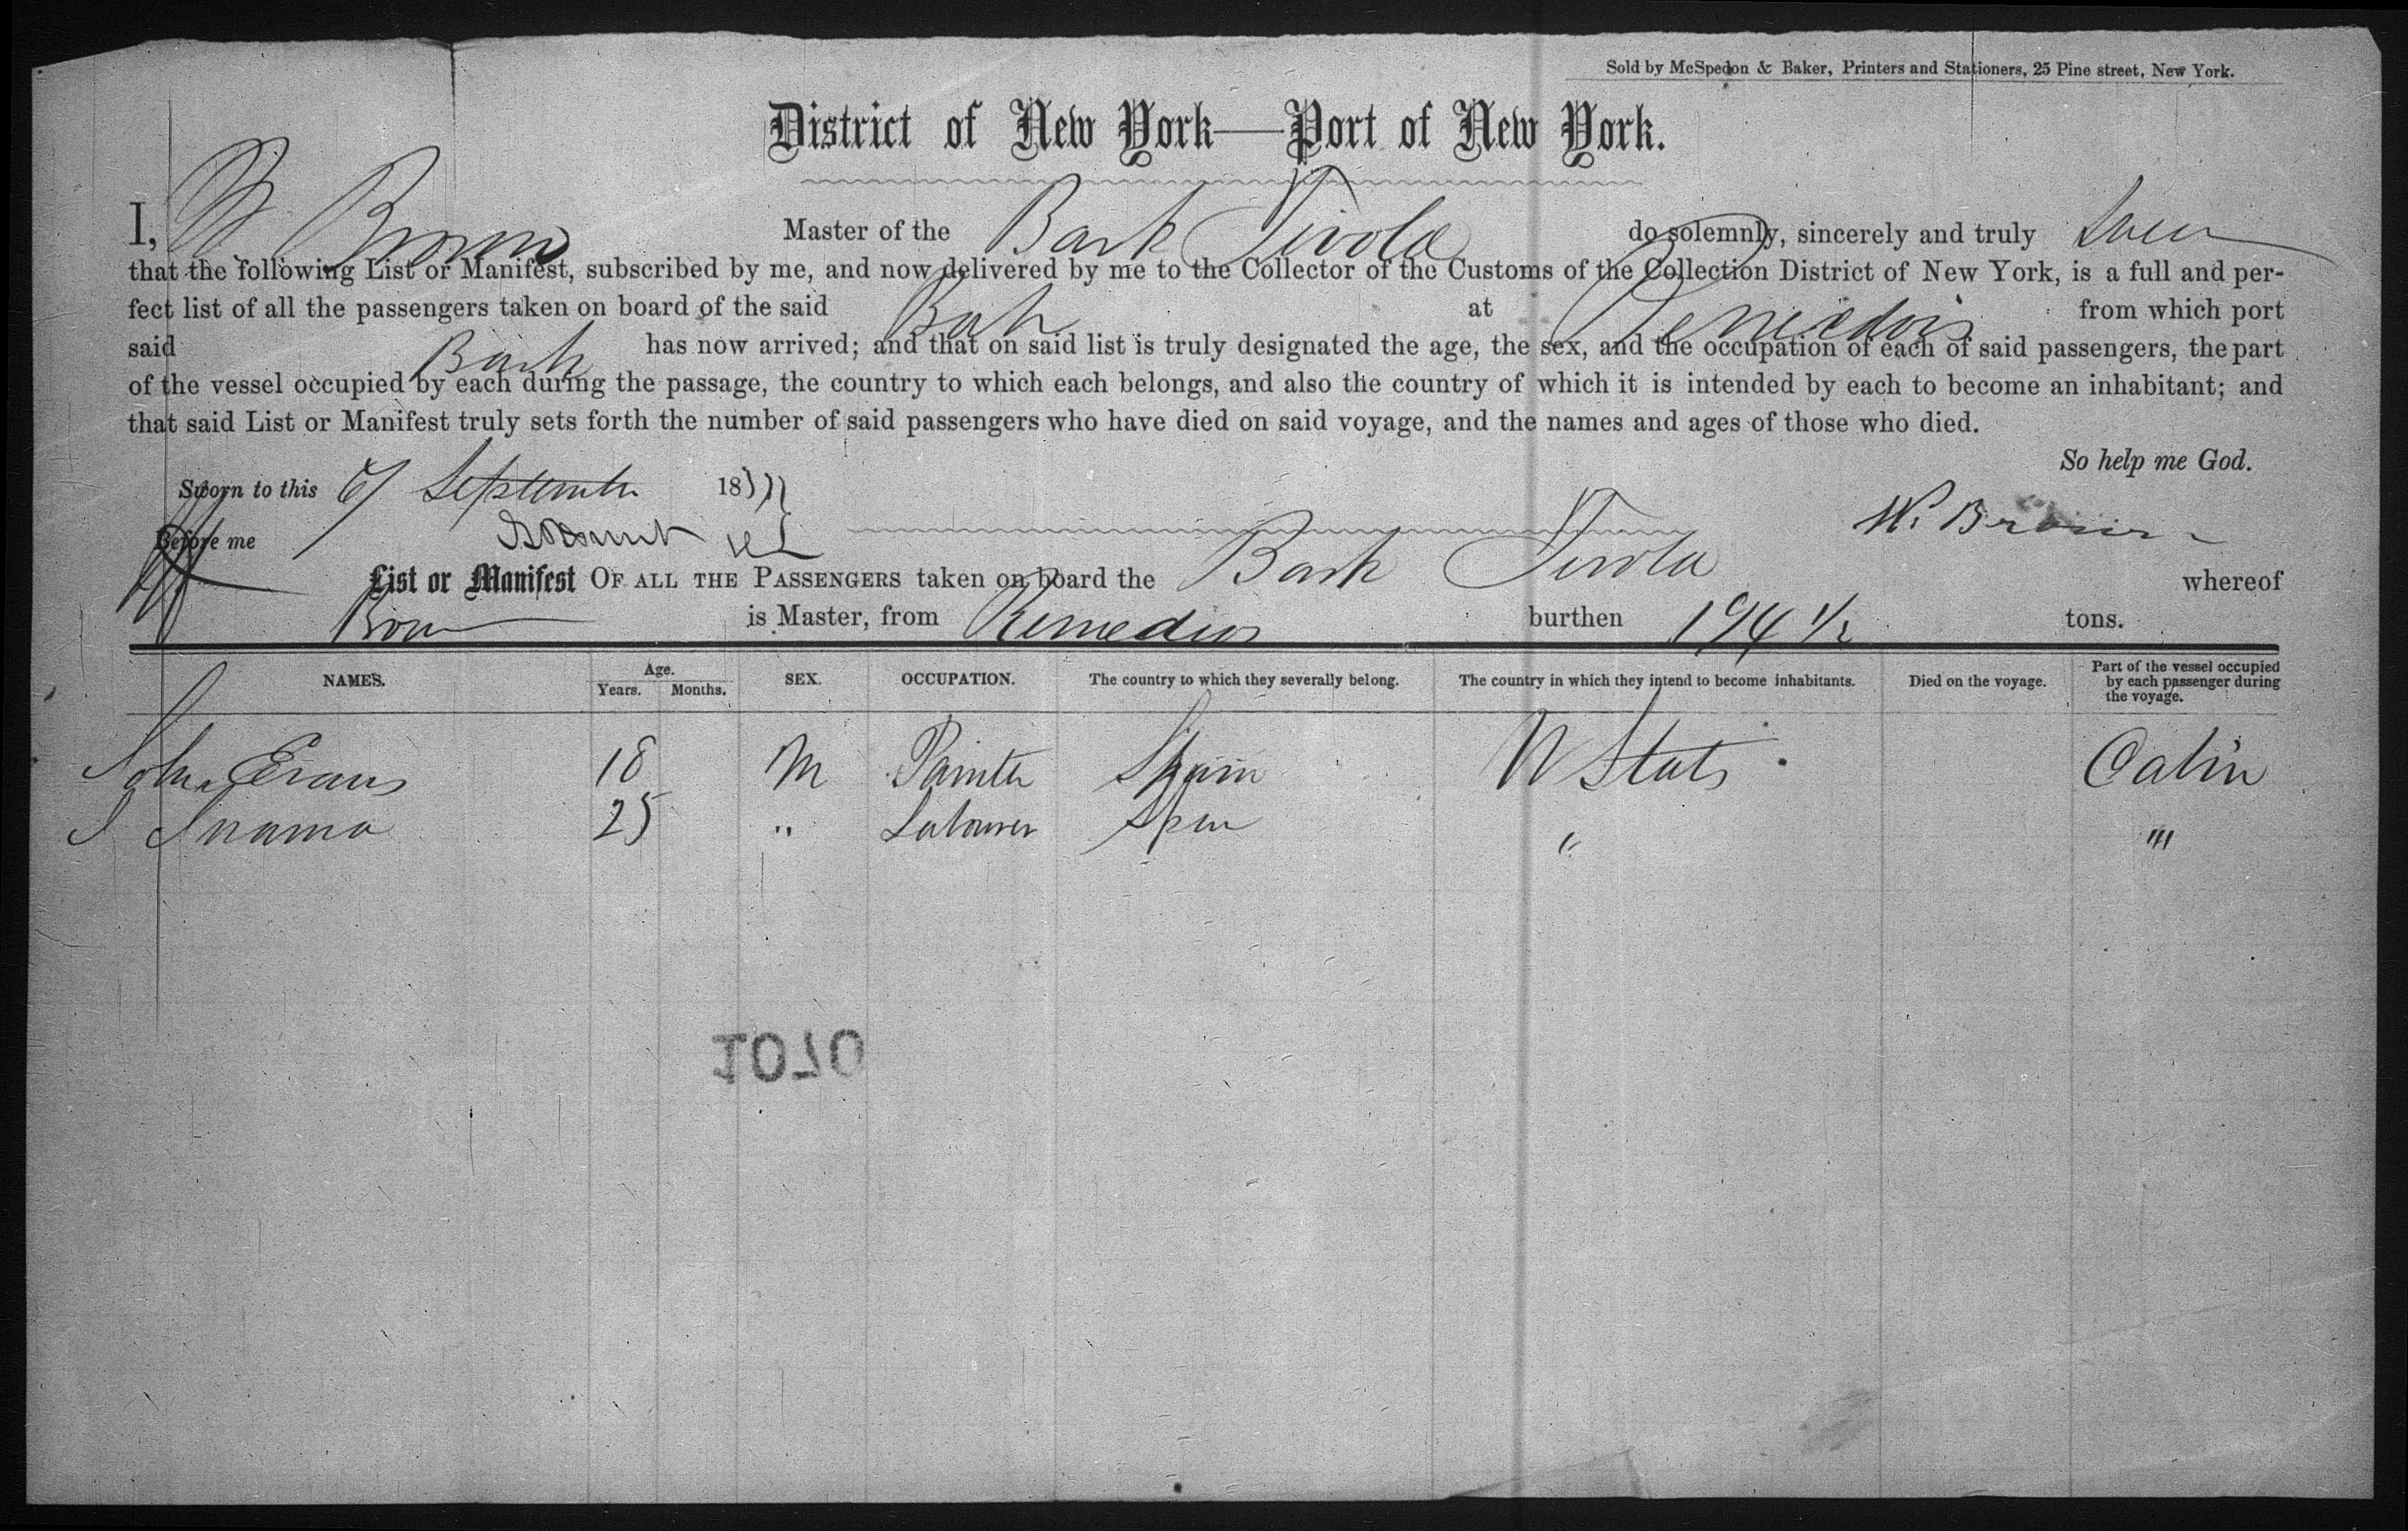 Sold by McSpedon & Baker, Printers and Stationers, 25 Pine street, New York.
District of New York—Port of New York.
I, W Brown Master of the Bark Tivola do solemnly, sincerely and truly swear
that the following List or Manifest, subscribed by me, and now delivered by me to the Collector of the Customs of the Collection District of New York, is a full and per-
fect list of all the passengers taken on board of the said Bark at Remedios from which port
said Bark has now arrived; and that on said list is truly designated the age, the sex, and the occupation of each of said passengers, the part
of the vessel occupied by each during the passage, the country to which each belongs, and also the country of which it is intended by each to become an inhabitant; and
that said List or Manifest truly sets forth the number of said passengers who have died on said voyage, and the names and ages of those who died.
So help me God.
Sworn to this 6 September 18
Before me W. Brown
List or Manifest OF ALL THE PASSENGERS taken on board the Bark Tivola whereof
Brown is Master, from Remedios burthen 194 1/2 tons.
NAMES. Age. Years. Months. SEX. OCCUPATION. The country to which they severally belong. The country in which they intend to become inhabitants. Died on the voyage. Part of the vessel occupied by each passenger during the voyage.
John Evans 18 M Painter Spain U States Cabin
25 " Labourer Spain " "
1070